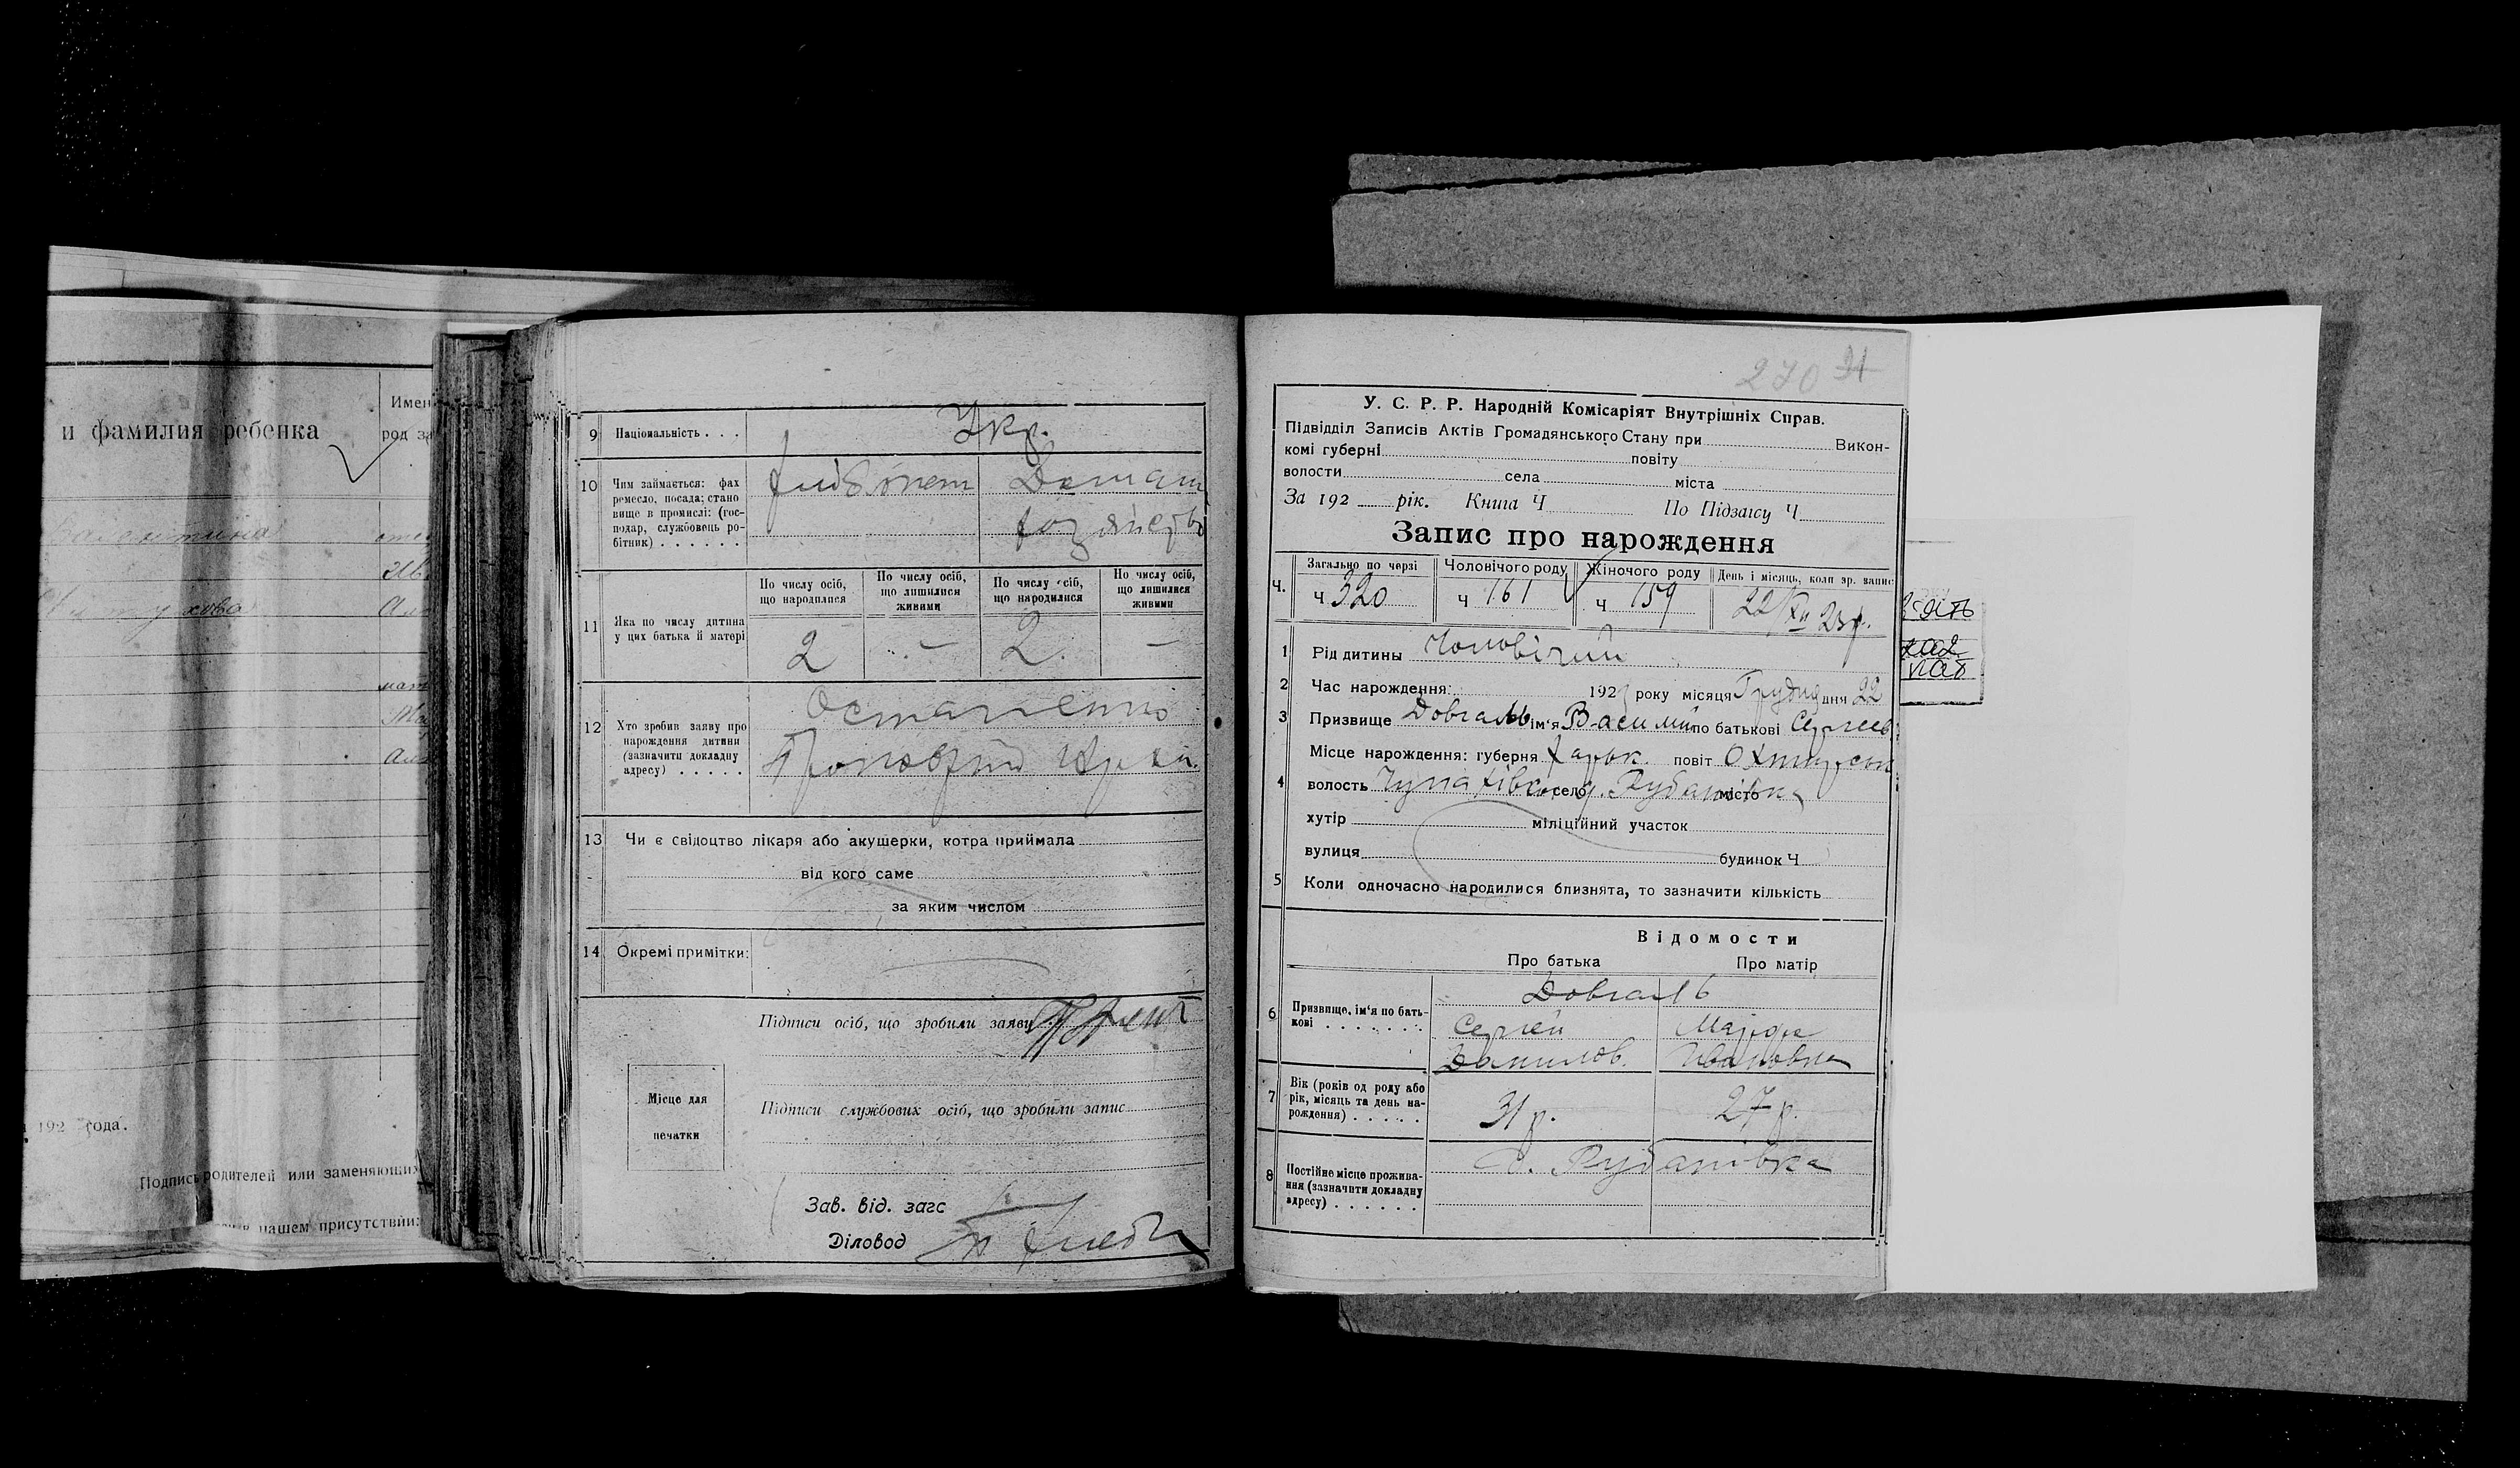 и фамилия ребенка
Имен
род за
Валентина
192 года.
Подпись родителей или заменяющих
в нашем присутствии:
9 Національність . . .
Укр.
10 Чим займається: фах
ремесло, посада; стано
вище в промислі: (гос-
подар, службовець ро-
бітник) . . . . . .
Хлібопет Домашн
хозяйство
11 Яка по числу дитина
у цих батька й матері
По числу осіб,
що народилися
По числу осіб,
що лишилися
живими
По числу осіб,
що народилися
По числу осіб,
що лишилися
живими
2 — 2. —
12 Хто зробив заяву про
нарождення дитини
(зазначити докладну
адресу) . . . . .
Остапенко
13 Чи є свідоцтво лікаря або акушерки, котра приймала
від кого саме
за яким числом
14 Окремі примітки:
Підписи осіб, що зробили заяву
Місце для
печатки
Підписи службових осіб, що зробили запис
Зав. від. загс
Діловод
270 31
У. С. Р. Р. Народній Комісаріят Внутрішніх Справ.
Підвідділ Записів Актів Громадянського Стану при Викон-
комі губерні повіту
волости села міста
За 192 рік. Книга Ч По Підзагсу Ч
Запис про нарождення
Ч.
Загально по черзі Чоловічого роду Жіночого роду День і місяць, коли зр. запис
Ч 320 Ч 161 Ч 159 22/XII 23р.
1 Рід дитини Чоловічий
2 Час нарождення: 1923 року місяця Грудня дня 22
3 Призвище Довгаль ім'я Василий по батькові Сергеев.
4 Місце нарождення: губерня Харьк. повіт Охтирськ
волость Чупахівка село д. Рубанівка місто
хутір міліційний участок
вулиця будинок Ч
5 Коли одночасно народилися близнята, то зазначити кількість
Відомости
Про батька Про матір
6 Призвище, ім'я по бать-
кові . . . . . . .
Довгаль
Сергей Марфа
Данилов. Ивановна
7 Вік (років од роду або
рік, місяць та день на-
рождення) . . . . .
31 р. 27 р.
8 Постійне місце прожива-
ння (зазначити докладну
адресу) . . . . . .
д. Рубанівка